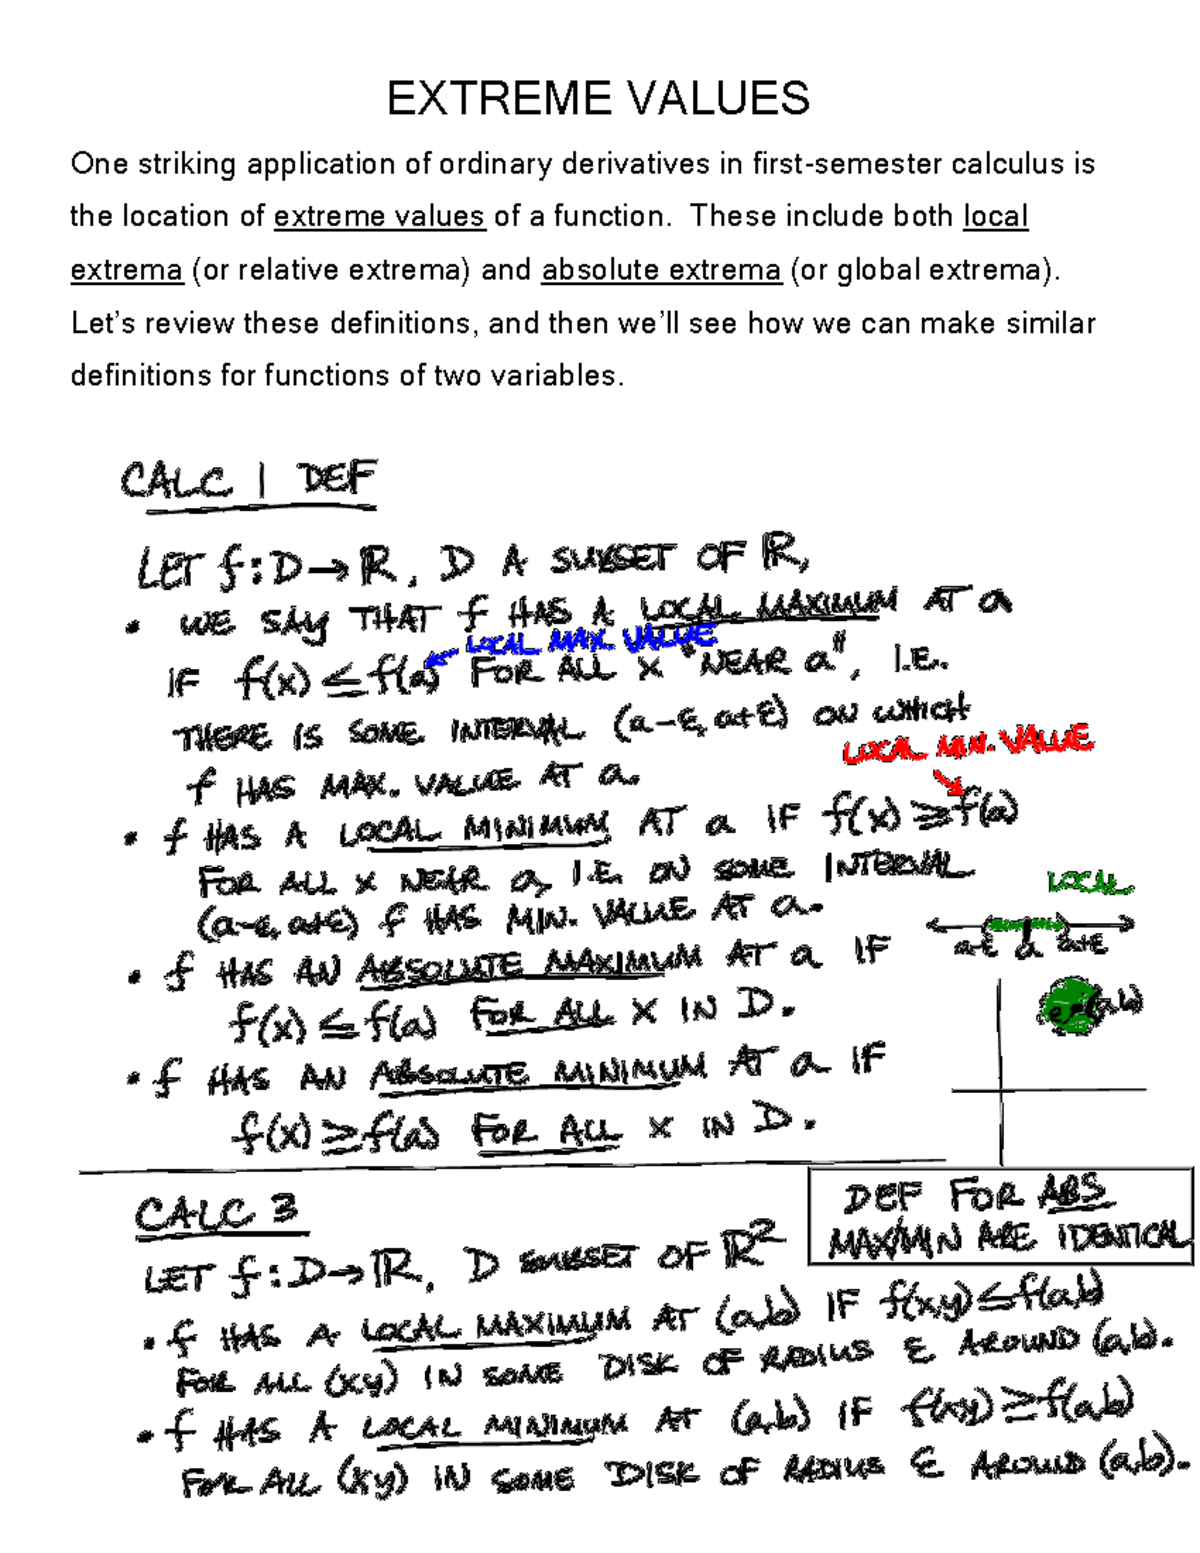 EXTREME VALUES
One striking application of ordinary derivatives in first-semester calculus is
the location of extreme values of a function. These include both local
extrema (or relative extrema) and absolute extrema (or global extrema).
Let's review these definitions, and then we'll see how we can make similar
definitions for functions of two variables.
CALC 1 DEF
LET f: D→ℝ, D A SUBSET OF ℝ,
• WE SAY THAT f HAS A LOCAL MAXIMUM AT a
LOCAL MAX. VALUE
IF f(x) ≤ f(a) FOR ALL x "NEAR a", I.E.
THERE IS SOME INTERVAL (a-ε, a+ε) ON WHICH
LOCAL MIN. VALUE
f HAS MAX. VALUE AT a.
• f HAS A LOCAL MINIMUM AT a IF f(x) ≥ f(a)
FOR ALL x NEAR a, I.E. ON SOME INTERVAL
LOCAL
(a-ε, a+ε) f HAS MIN. VALUE AT a.
a-ε a a+ε
• f HAS AN ABSOLUTE MAXIMUM AT a IF
f(x) ≤ f(a) FOR ALL x IN D.
ε (a,b)
• f HAS AN ABSOLUTE MINIMUM AT a IF
f(x) ≥ f(a) FOR ALL x IN D.
CALC 3
DEF FOR ABS
MAX/MIN ARE IDENTICAL
LET f: D→ℝ, D SUBSET OF ℝ²
• f HAS A LOCAL MAXIMUM AT (a,b) IF f(x,y) ≤ f(a,b)
FOR ALL (x,y) IN SOME DISK OF RADIUS ε AROUND (a,b).
• f HAS A LOCAL MINIMUM AT (a,b) IF f(x,y) ≥ f(a,b)
FOR ALL (x,y) IN SOME DISK OF RADIUS ε AROUND (a,b).